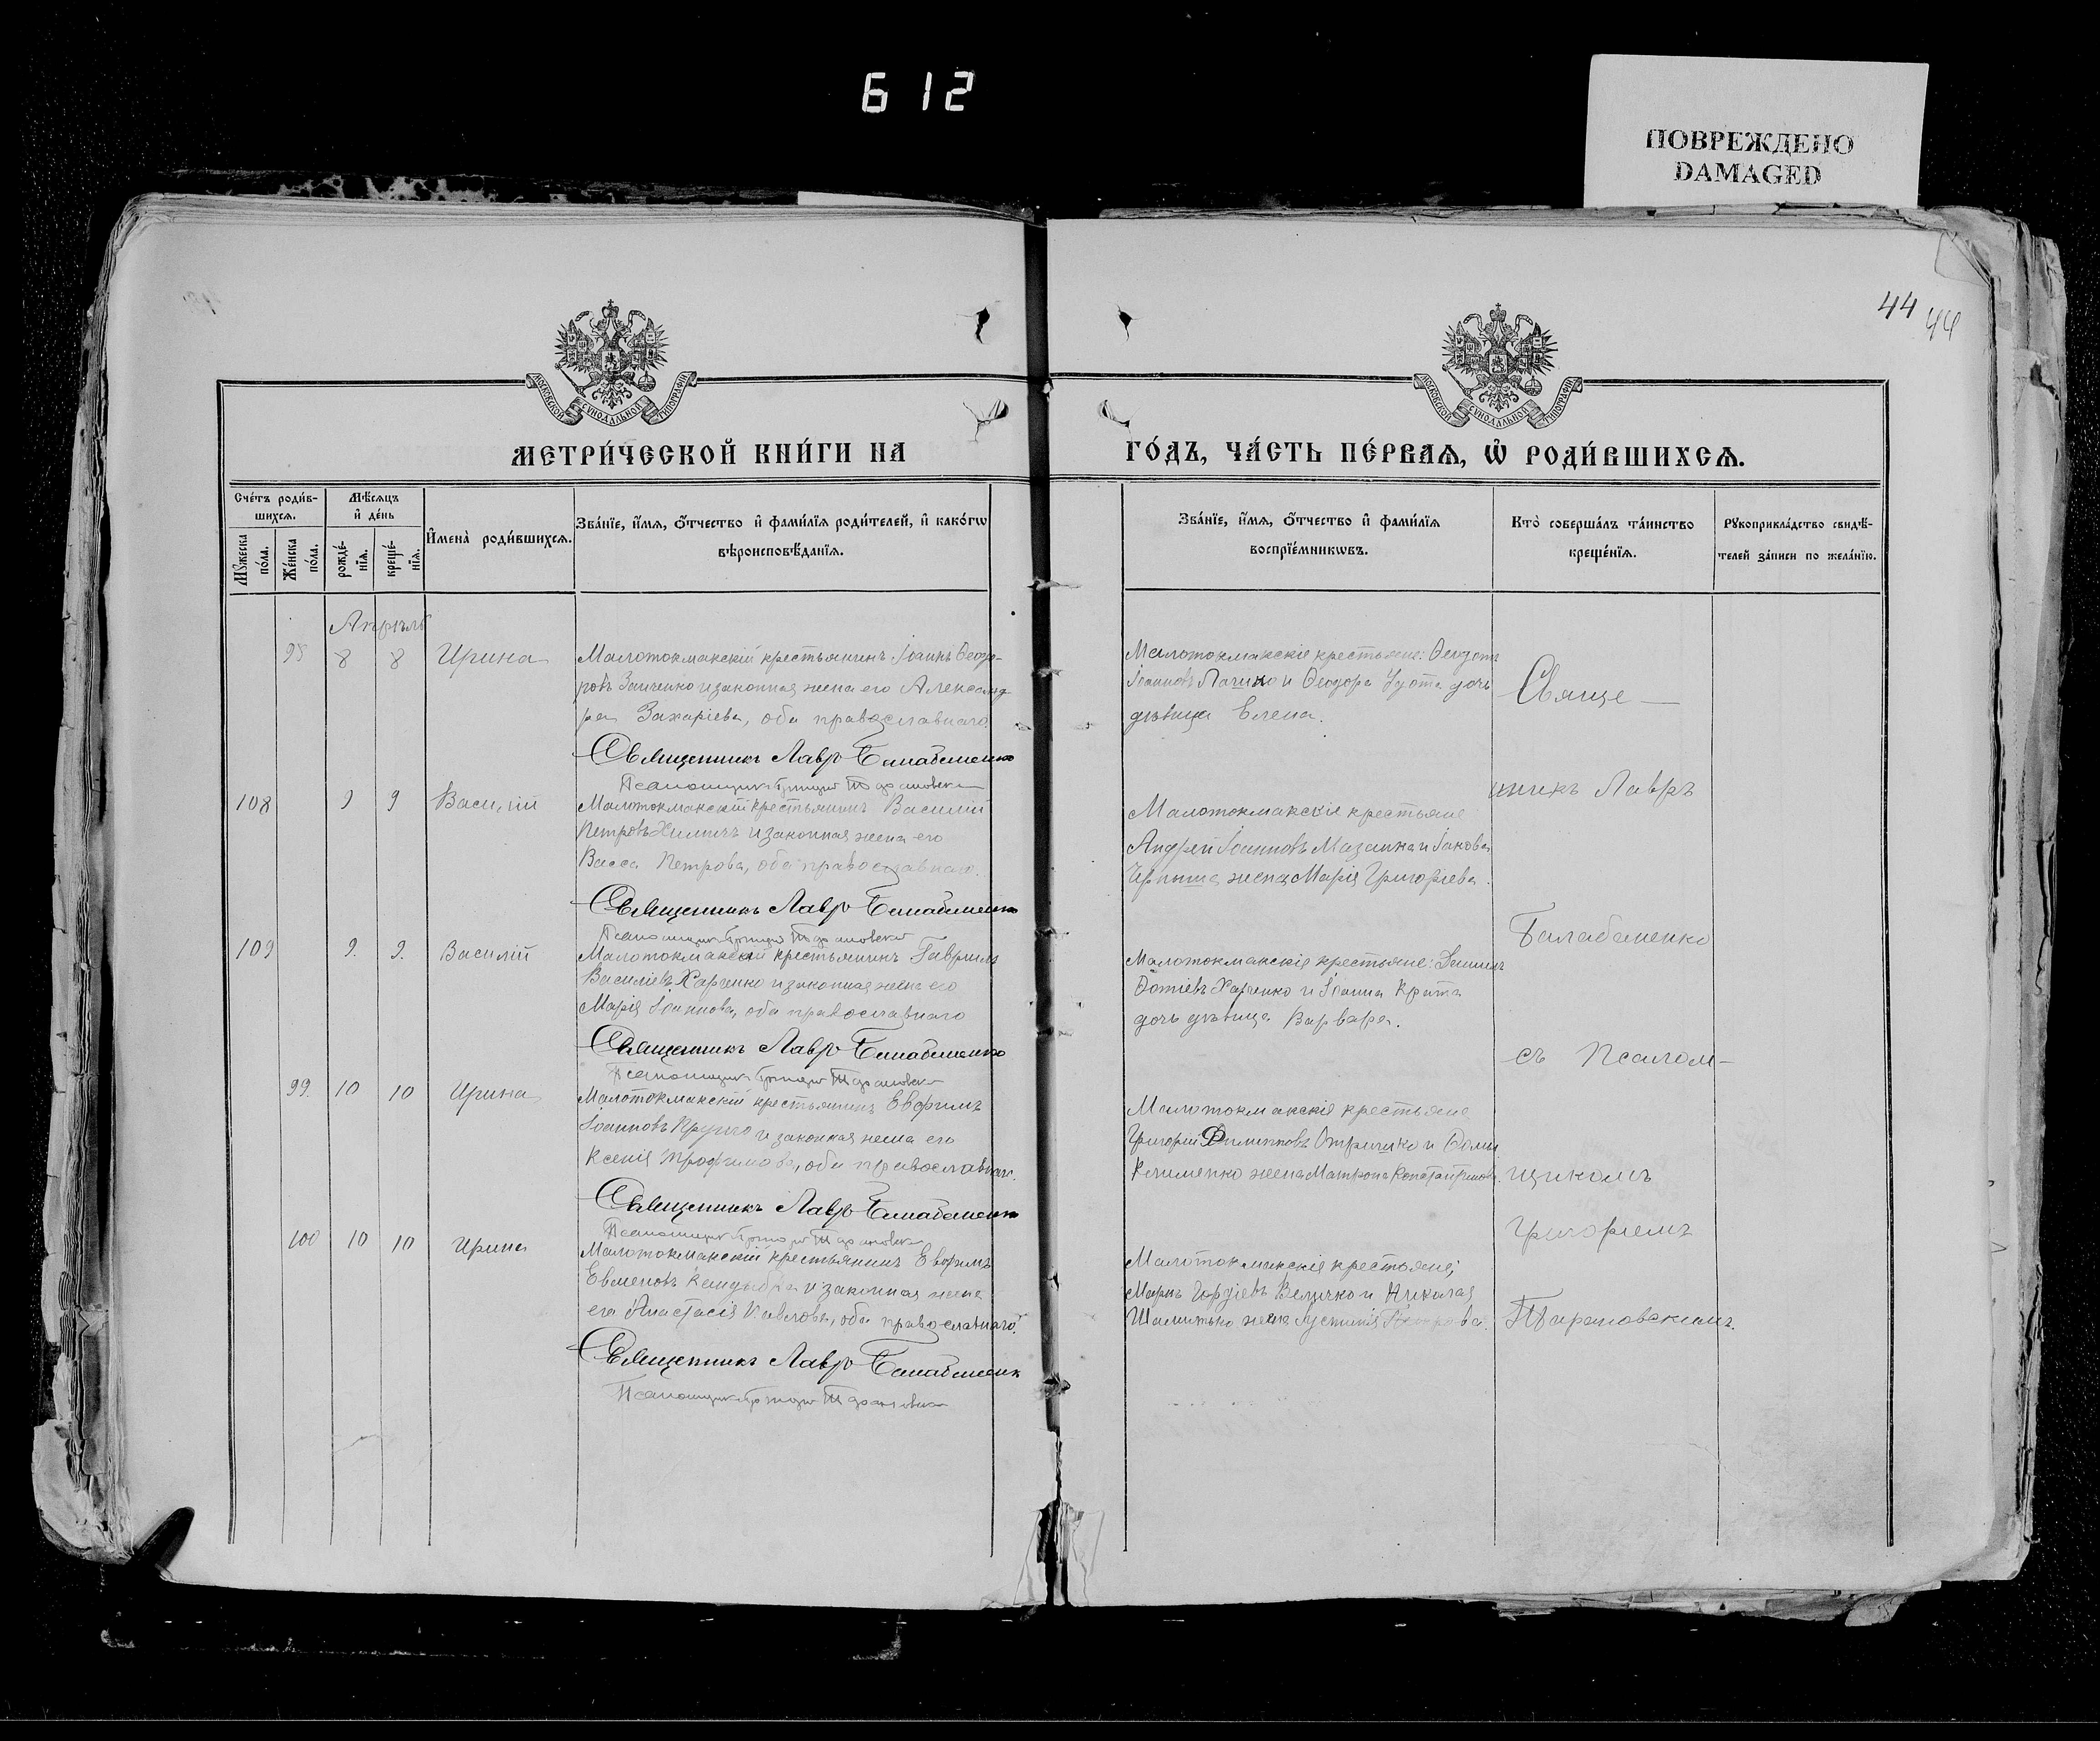 612
ПОВРЕЖДЕНО
DAMAGED
44 44
МОСКОВСКОЙ СѴНОДАЛЬНОЙ ТИПОГРАФІИ
МОСКОВСКОЙ СѴНОДАЛЬНОЙ ТИПОГРАФІИ
МЕТРИ́ЧЕСКОЙ КНИ́ГИ НА
ГО́ДЪ, ЧА́СТЬ ПЕ́РВАѦ, Ѡ҆ РОДИ́ВШИХСѦ.
Сче́тъ роди́в-
шихсѧ.
Мѣ́сѧцъ
и҆ де́нь
Мꙋ́жеска
по́ла.
Же́нска
по́ла.
рожде́-
нїѧ.
креще́-
нїѧ.
И҆мена̀ роди́вшихсѧ.
Зва́нїе, и҆́мѧ, ѻ҆́тчество и҆ фами́лїѧ роди́телей, и҆ како́гѡ
вѣ́роисповѣ́данїѧ.
Зва́нїе, и҆́мѧ, ѻ҆́тчество и҆ фами́лїѧ
воспрїе́мникѡвъ.
Кто̀ соверша́лъ та́инство
креще́нїѧ.
Рꙋкоприкла́дство свидѣ́-
телей за́писи по жела́нїю.
Апрѣль
98 8 8 Ирина
Малотокмакскій крестьянинъ Іоаннъ Ѳеодо-
ровъ Заиченко и законная жена его Александ-
ра Захаріева, оба православнаго.
Священникъ Лавръ Балабаненко
Псаломщикъ Григорій Тарановскій
Малотокмакскіе крестьяне: Ѳеодотъ
Іоанновъ и Ѳеодора дочь
дѣвица Елена.
108 9 9 Василій
Малотокмакскій крестьянинъ Василій
Петровъ Химичъ и законная жена его
Васса Петрова, оба православнаго.
Священникъ Лавръ Балабаненко
Псаломщикъ Григорій Тарановскій
Малотокмакскіе крестьяне
Андрей Іоанновъ Мазанка и Іакова
жена Марія Григоріева.
109 9. 9. Василій
Малотокмакскій крестьянинъ Гавріилъ
Василіевъ Харченко и законная жена его
Марія Іоаннова, оба православнаго
Священникъ Лавръ Балабаненко
Псаломщикъ Григорій Тарановскій
Малотокмакскіе крестьяне: Даніилъ
Фотіевъ Харченко и Іоанна
дочь дѣвица Варвара.
99. 10 10 Ирина
Малотокмакскій крестьянинъ Евфимъ
Іоанновъ и законная жена его
Ксенія Трофимова, оба православнаго.
Священникъ Лавръ Балабаненко
Псаломщикъ Григорій Тарановскій
Малотокмакскіе крестьяне
Григорій Филипповъ и Ѳомы
Клименко жена Матрона Константинова.
100 10 10 Ирина
Малотокмакскій крестьянинъ Евфимъ
Евменовъ и законная жена
его Анастасія Павлова, оба православнаго.
Священникъ Лавръ Балабаненко
Псаломщикъ Григорій Тарановскій
Малотокмакскіе крестьяне:
Маркъ Гордіевъ Величко и Николая
жена Іустинія Петрова.
Свяще-
нникъ Лавръ
Балабаненко
съ Псалом-
щикомъ
Григоріемъ
Тарановскимъ.